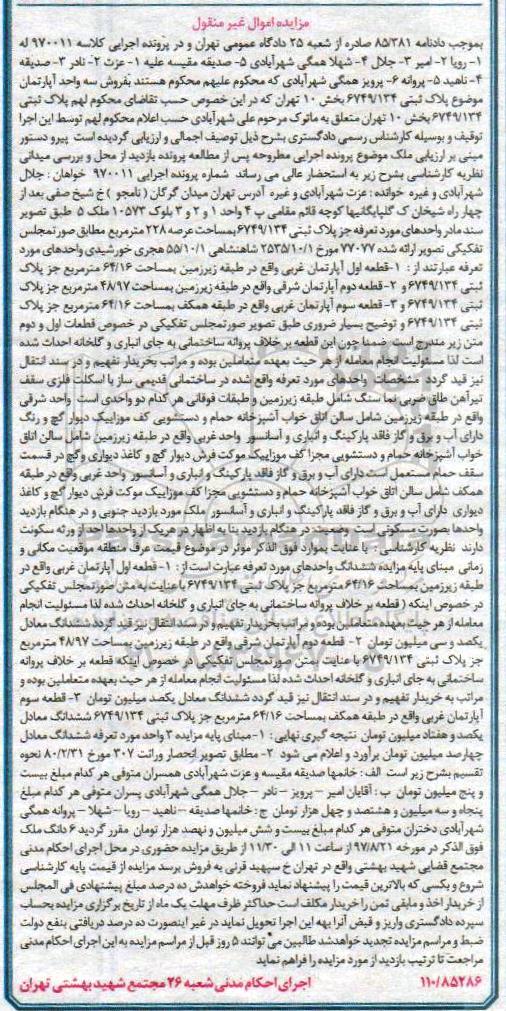 مزایده اموال غیر منقول
بموجب دادنامه ۸۵/۳۸۱ صادره از شعبه ۲۵ دادگاه عمومی تهران و در پرونده اجرایی کلاسه ۹۷۰۰۱۱ له
۱- رویا ۲- امیر ۳- جلال ۴- شهلا همگی شهرآبادی ۵- صدیقه مقیسه علیه ۱- عزت ۲- نادر ۳- صدیقه
۴- ناهید ۵- پروانه ۶- پرویز همگی شهرآبادی که محکوم علیهم محکوم هستند بفروش سه واحد آپارتمان
موضوع پلاک ثبتی ۶۷۴۹/۱۳۴ بخش ۱۰ تهران که در این خصوص حسب تقاضای محکوم لهم پلاک ثبتی
۶۷۴۹/۱۳۴ بخش ۱۰ تهران متعلق به ماترک مرحوم علی شهرآبادی حسب اعلام محکوم لهم توسط این اجرا
توقیف و بوسیله کارشناس رسمی دادگستری بشرح ذیل توصیف اجمالی و ارزیابی گردیده است پیرو دستور
مبنی بر ارزیابی ملک موضوع پرونده اجرایی مطروحه پس از مطالعه پرونده بازدید از محل و بررسی میدانی
نظریه کارشناسی بشرح زیر به استحضار عالی می رساند شماره پرونده اجرایی ۹۷۰۰۱۱ خواهان : جلال
شهرآبادی و غیره خوانده : عزت شهرآبادی و غیره آدرس تهران میدان گرگان ( نامجو ) خ شیخ صفی بعد از
چهار راه شیخان ک گلپایگانیها کوچه قائم مقامی پ ۴ واحد ۱ و ۲ و ۳ بلوک ۱۰۵۷۳ ملک ۵ طبق تصویر
سند مادر واحدهای مورد تعرفه جز پلاک ثبتی ۶۷۴۹/۱۳۴ بمساحت عرصه ۲۲۸ مترمربع مطابق صورتمجلس
تفکیکی تصویر ارائه شده ۷۷۰۷۷ مورخ ۲۵۳۵/۱۰/۱ شاهنشاهی ۵۵/۱۰/۱ هجری خورشیدی واحدهای مورد
تعرفه عبارتند از : ۱- قطعه اول آپارتمان غربی واقع در طبقه زیرزمین بمساحت ۶۴/۱۶ مترمربع جز پلاک
ثبتی ۶۷۴۹/۱۳۴ و ۲- قطعه دوم آپارتمان شرقی واقع در طبقه زیرزمین بمساحت ۴۸/۹۷ مترمربع جز پلاک
ثبتی ۶۷۴۹/۱۳۴ و ۳- قطعه سوم آپارتمان غربی واقع در طبقه همکف بمساحت ۶۴/۱۶ مترمربع جز پلاک
ثبتی ۶۷۴۹/۱۳۴ و توضیح بسیار ضروری طبق تصویر صورتمجلس تفکیکی در خصوص قطعات اول و دوم
متن زیر مندرج است ضمنا چون این قطعه بر خلاف پروانه ساختمانی به جای انباری و گلخانه احداث شده
است لذا مسئولیت انجام معامله از هر حیث بعهده متعاملین بوده و مراتب بخریدار تفهیم و در سند انتقال
نیز قید گردد مشخصات واحدهای مورد تعرفه واقع شده در ساختمانی قدیمی ساز با اسکلت فلزی سقف
تیرآهن طاق ضربی نما سنگ شامل طبقه زیرزمین و طبقات فوقانی هر کدام دو واحدی است واحد شرقی
واقع در طبقه زیرزمین شامل سالن اتاق خواب آشپزخانه حمام و دستشویی کف موزاییک دیوار گچ و رنگ
دارای آب و برق و گاز فاقد پارکینگ و انباری و آسانسور واحد غربی واقع در طبقه زیرزمین شامل سالن اتاق
خواب آشپزخانه حمام و دستشویی مجزا کف موزاییک موکت فرش دیوار گچ و کاغذ دیواری وگچ در قسمت
سقف حمام مستعمل است دارای آب و برق و گاز فاقد پارکینگ و انباری و آسانسور واحد غربی واقع در طبقه
همکف شامل سالن اتاق خواب آشپزخانه حمام و دستشویی مجزا کف موزاییک موکت فرش دیوار گچ و کاغذ
دیواری دارای آب و برق و گاز فاقد پارکینگ و انباری و آسانسور ملک مورد بازدید جنوبی و در هنگام بازدید
واحدها بصورت مسکونی است وضعیت : در هنگام بازدید بنا به اظهار در هریک از واحدها احد از ورثه سکونت
دارند نظریه کارشناسی : با عنایت بموارد فوق الذکر موثر در موضوع قیمت عرف منطقه موقعیت مکانی و
زمانی مبنای پایه مزایده ششدانگ واحدهای مورد تعرفه عبارت است از : ۱- قطعه اول آپارتمان غربی واقع در
طبقه زیرزمین بمساحت ۶۴/۱۶ مترمربع جز پلاک ثبتی ۶۷۴۹/۱۳۴ با عنایت به متن صورتمجلس تفکیکی
در خصوص اینکه ( قطعه بر خلاف پروانه ساختمانی به جای انباری و گلخانه احداث شده لذا مسئولیت انجام
معامله از هر حیث بعهده متعاملین بوده و مراتب بخریدار تفهیم و در سند انتقال نیز قید گردد ششدانگ معادل
یکصد و سی میلیون تومان ۲- قطعه دوم آپارتمان شرقی واقع در طبقه زیرزمین بمساحت ۴۸/۹۷ مترمربع
جز پلاک ثبتی ۶۷۴۹/۱۳۴ با عنایت متن صورتمجلس تفکیکی در خصوص اینکه قطعه بر خلاف پروانه
ساختمانی به جای انباری و گلخانه احداث شده لذا مسئولیت انجام معامله از هر حیث بعهده متعاملین بوده و
مراتب به خریدار تفهیم و در سند انتقال نیز قید گردد ششدانگ معادل یکصد میلیون تومان ۳- قطعه سوم
آپارتمان غربی واقع در طبقه همکف بمساحت ۶۴/۱۶ مترمربع جز پلاک ثبتی ۶۷۴۹/۱۳۴ ششدانگ معادل
یکصد و هفتاد میلیون تومان نتیجه گیری نهایی : ۱- مبنای پایه مزایده ۳ واحد مورد تعرفه ششدانگ معادل
چهارصد میلیون تومان برآورد و اعلام می شود ۲- مطابق تصویر انحصار وراثت ۳۰۷ مورخ ۸۰/۲/۳۱ نحوه
تقسیم بشرح زیر است الف : خانمها صدیقه مقیسه و عزت شهرآبادی همسران متوفی هر کدام مبلغ بیست
و پنج میلیون تومان ب : آقایان امیر – پرویز – نادر – جلال همگی شهرآبادی پسران متوفی هر کدام مبلغ
پنجاه و سه میلیون و هشتصد و چهل هزار تومان ج : خانمها صدیقه – ناهید – رویا – شهلا – پروانه همگی
شهرآبادی دختران متوفی هر کدام مبلغ بیست و شش میلیون و نهصد هزار تومان مقرر گردید ۶ دانگ ملک
فوق الذکر در مورخه ۹۷/۸/۲۱ از ساعت ۱۱ الی ۱۱/۳۰ از طریق مزایده حضوری در محل اجرای احکام مدنی
مجتمع قضایی شهید بهشتی واقع در تهران خ سپهبد قرنی به فروش برسد مزایده از قیمت پایه کارشناسی
شروع و بکسی که بالاترین قیمت را پیشنهاد نماید فروخته خواهدش ده درصد مبلغ پیشنهادی فی المجلس
از خریدار اخذ و مابقی ثمن را خریدار مکلف است حداکثر ظرف مهلت یک ماه از تاریخ برگزاری مزایده بحساب
سپرده دادگستری واریز و قبض آنرا بهه این اجرا تحویل نماید در غیر اینصورت ده درصد دریافتی بنفع دولت
ضبط و مراسم مزایده تجدید خواهدشد طالبین می توانند ۵ روز قبل از مراسم مزایده به این اجرای احکام مدنی
مراجعت تا ترتیب بازدید از مورد مزایده را فراهم نماید
۱۱۰/۸۵۲۸۶ اجرای احکام مدنی شعبه ۲۶ مجتمع شهید بهشتی تهران